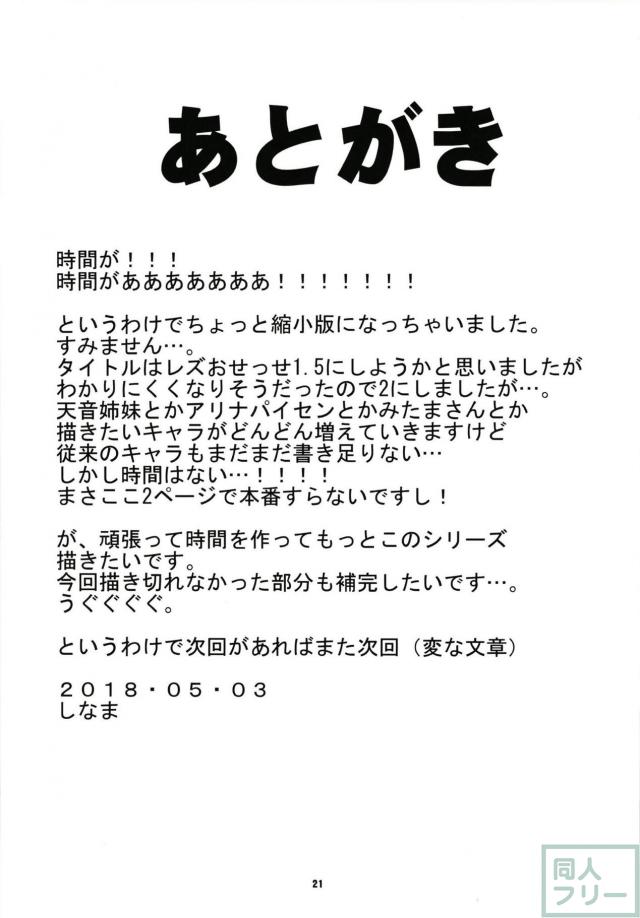 あとがき
時間が！！！
時間がああああああ！！！！！！！
というわけでちょっと縮小版になっちゃいました。
すみません…。
タイトルはレズおせっせ1.5にしようかと思いましたが
わかりにくくなりそうだったので2にしましたが…。
天音姉妹とかアリナパイセンとかみたまさんとか
描きたいキャラがどんどん増えていきますけど
従来のキャラもまだまだ書き足りない…
しかし時間はない…！！！！
まさここ2ページで本番すらないですし！
が、頑張って時間を作ってもっとこのシリーズ
描きたいです。
今回描き切れなかった部分も補完したいです…。
うぐぐぐぐ。
というわけで次回があればまた次回（変な文章）
２０１８・０５・０３
しなま
21
同人
フリー